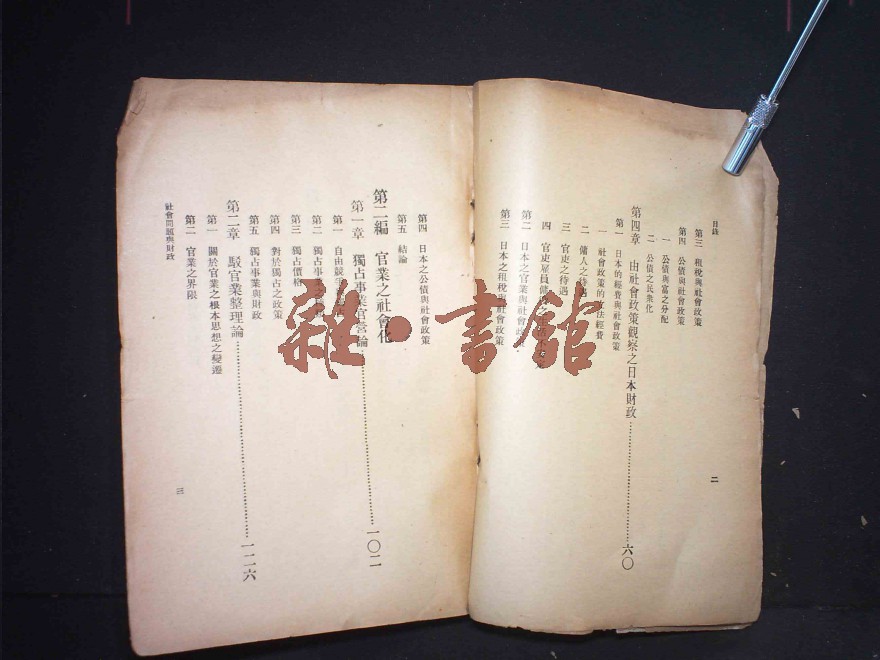 目錄
第三 租稅與社會政策
第四 公債與社會政策
一 公債與富之分配
二 公債之民衆化
第四章 由社會政策觀察之日本財政……六〇
第一 日本的經費與社會政策
一 社會政策的 經費
二 傭人之待遇
三 官吏之待遇
四 官吏雇員傭
第二 日本之官業與社會政
第三 日本之租稅與社會政策
二
第四 日本之公債與社會政策
第五 結論
第二編 官業之社會化
第一章 獨占事業官營論……一〇二
第一 自由競爭
第二 獨占事業之
第三 獨占價格
第四 對於獨占之政策
第五 獨占事業與財政
第二章 駁官業整理論……一二六
第一 關於官業之根本思想之變遷
第二 官業之界限
社會問題與財政
三
雜·書館